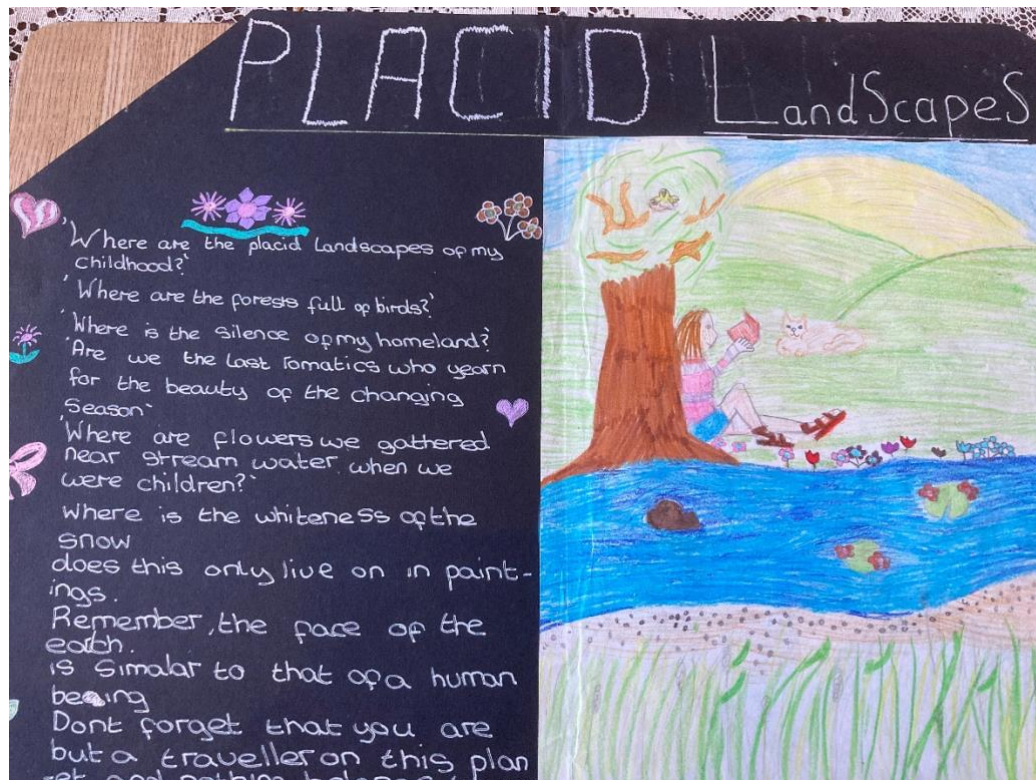 PLACID LandScapeS
'Where are the placid landscapes of my
childhood?'
'Where are the forests full of birds?'
'Where is the silence of my homeland?
'Are we the last romatics who yearn
for the beauty of the changing
season'
'Where are flowers we gathered
near stream water when we
were children?'
Where is the whiteness of the
snow
does this only live on in paint-
ings.
Remember, the face of the
earth.
is simalar to that of a human
being
Dont forget that you are
but a traveller on this plan
et and nothing belongs